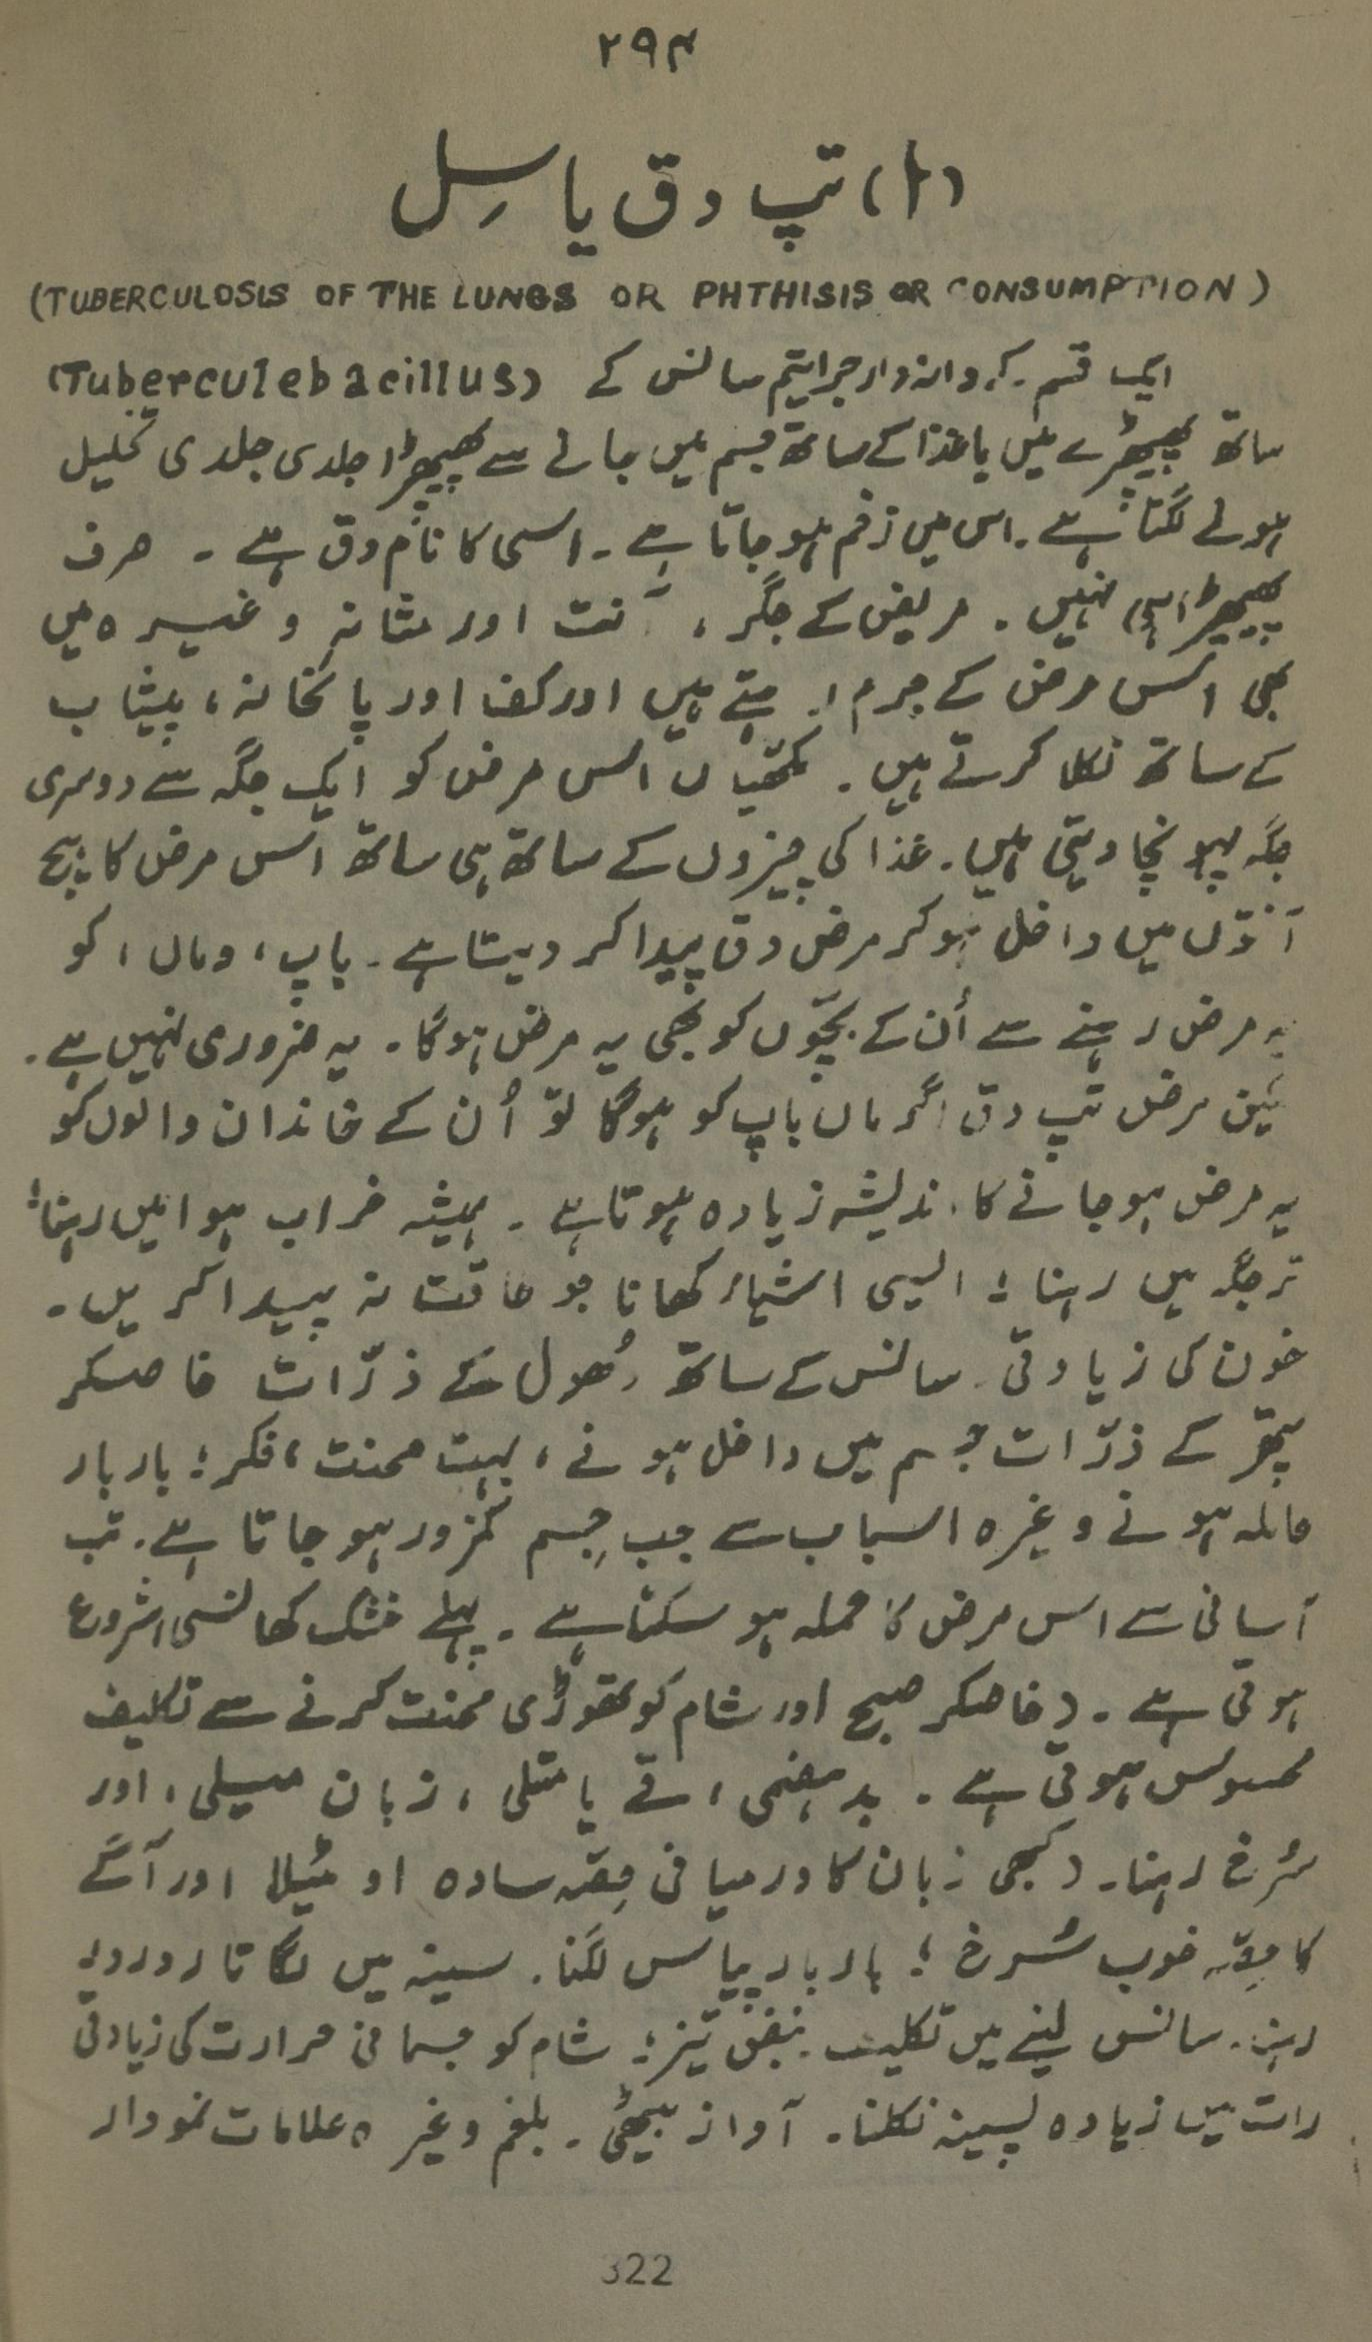 ۲۹۴
(۱) تپ دق یا سِل
(TUBERCULOSIS OF THE LUNGS OR PHTHISIS OR CONSUMPTION)
ایک قسم کے دانہ دار جراثیم سانس کے (Tuberculebacillus)
ساتھ پھیپھڑے میں یا غذا کے ساتھ جسم میں جانے سے پھیپھڑا جلدی جلدی تحلیل
ہونے لگتا ہے۔ اس میں زخم ہو جاتا ہے۔ اسی کا نام دق ہے۔ صرف
پھیپھڑا ہی نہیں۔ مریض کے جگر، آنت اور مثانہ وغیرہ میں
بھی اس مرض کے جرم رہتے ہیں اور کف اور پاخانہ، پیشاب
کے ساتھ نکلا کرتے ہیں۔ مکھیاں اس مرض کو ایک جگہ سے دوسری
جگہ پہونچا دیتی ہیں۔ غذا کی چیزوں کے ساتھ ہی ساتھ اس مرض کا بیج
آنتوں میں داخل ہو کر مرض دق پیدا کر دیتا ہے۔ باپ، و ماں، کو
یہ مرض رہنے سے اُن کے بچّوں کو بھی یہ مرض ہوگا۔ یہ ضروری نہیں ہے۔
لیکن مرض تپ دق اگر ماں باپ کو ہوگا تو اُن کے خاندان والوں کو
یہ مرض ہو جانے کا اندیشہ زیادہ ہوتا ہے۔ ہمیشہ خراب ہوا میں رہنا؛
تر جگہ میں رہنا؛ ایسی اشیاء کھانا جو طاقت نہ پیدا کریں۔
خون کی زیادتی۔ سانس کے ساتھ دُھول کے ذرّات خاصکر
پتھّر کے ذرّات جسم میں داخل ہونے، بہت محنت، فکر؛ بار بار
حاملہ ہونے وغیرہ اسباب سے جب جِسم کمزور ہو جاتا ہے۔ تب
آسانی سے اس مرض کا حملہ ہو سکتا ہے۔ پہلے خشک کھانسی شروع
ہوتی ہے۔ (خاصکر صبح اور شام کو تھوڑی محنت کرنے سے تکلیف
محسوس ہوتی ہے۔ بدہضمی، قے یا متلی، زبان میلی، اور
سُرخ رہنا۔ (کبھی زبان کا درمیانی حِصّہ سادہ او مَیلا اور آگے
کا حِصّہ خوب سُرخ؛ بار بار پیاس لگنا۔ سینہ میں لگاتار درد
رہنا۔ سانس لینے میں تکلیف۔ نبض تیز؛ شام کو جسمانی حرارت کی زیادتی
رات میں زیادہ پسینہ نکلنا۔ آواز بیٹھی۔ بلغم وغیرہ علامات نمودار
322